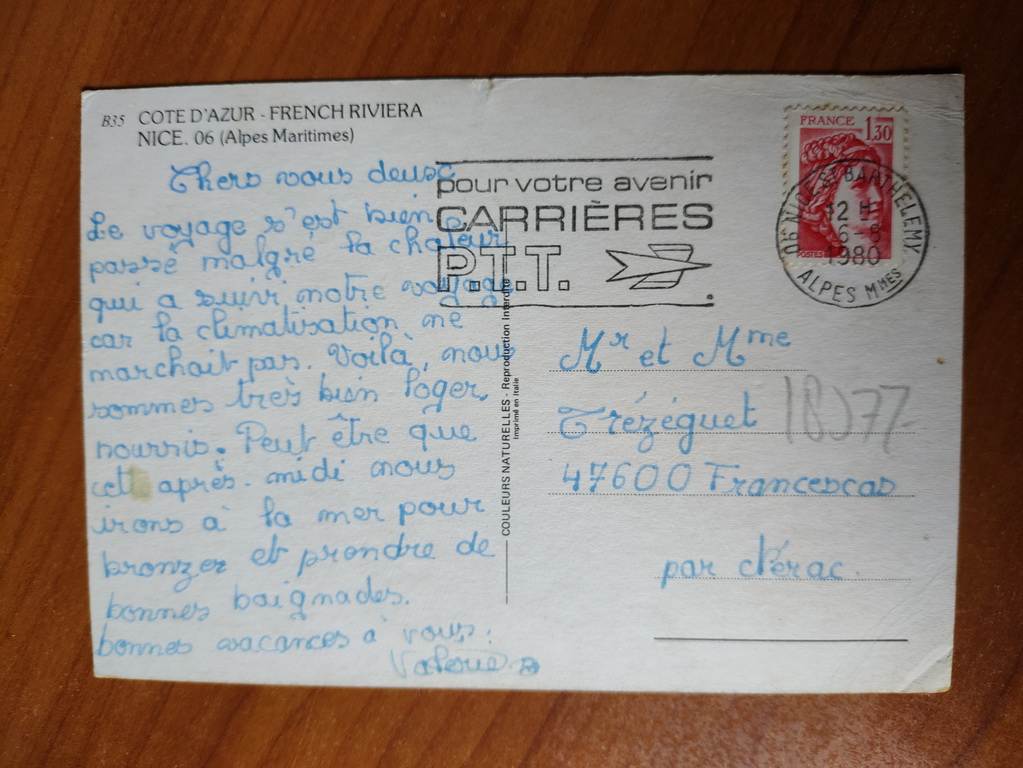 B35 COTE D'AZUR - FRENCH RIVIERA
NICE. 06 (Alpes Maritimes)
Chers vous deux,
Le voyage s'est bien
passé malgré la chaleur
qui a suivi notre voyage
car la climatisation ne
marchait pas. Voilà, nous
sommes très bien loger,
nourris. Peut être que
cet après-midi nous
irons à la mer pour
bronzer et prendre de
bonnes baignades.
bonnes vacances à vous.
Valérie B
pour votre avenir
CARRIÈRES
P.T.T.
FRANCE 1,30
POSTES
06 NICE ST BARTHELEMY
12 H
6-8
1980
ALPES MMES
COULEURS NATURELLES - Reproduction Interdite
Imprimé en Italie
Mr et Mme
Trézéguet
47600 Francescas
par Nérac.